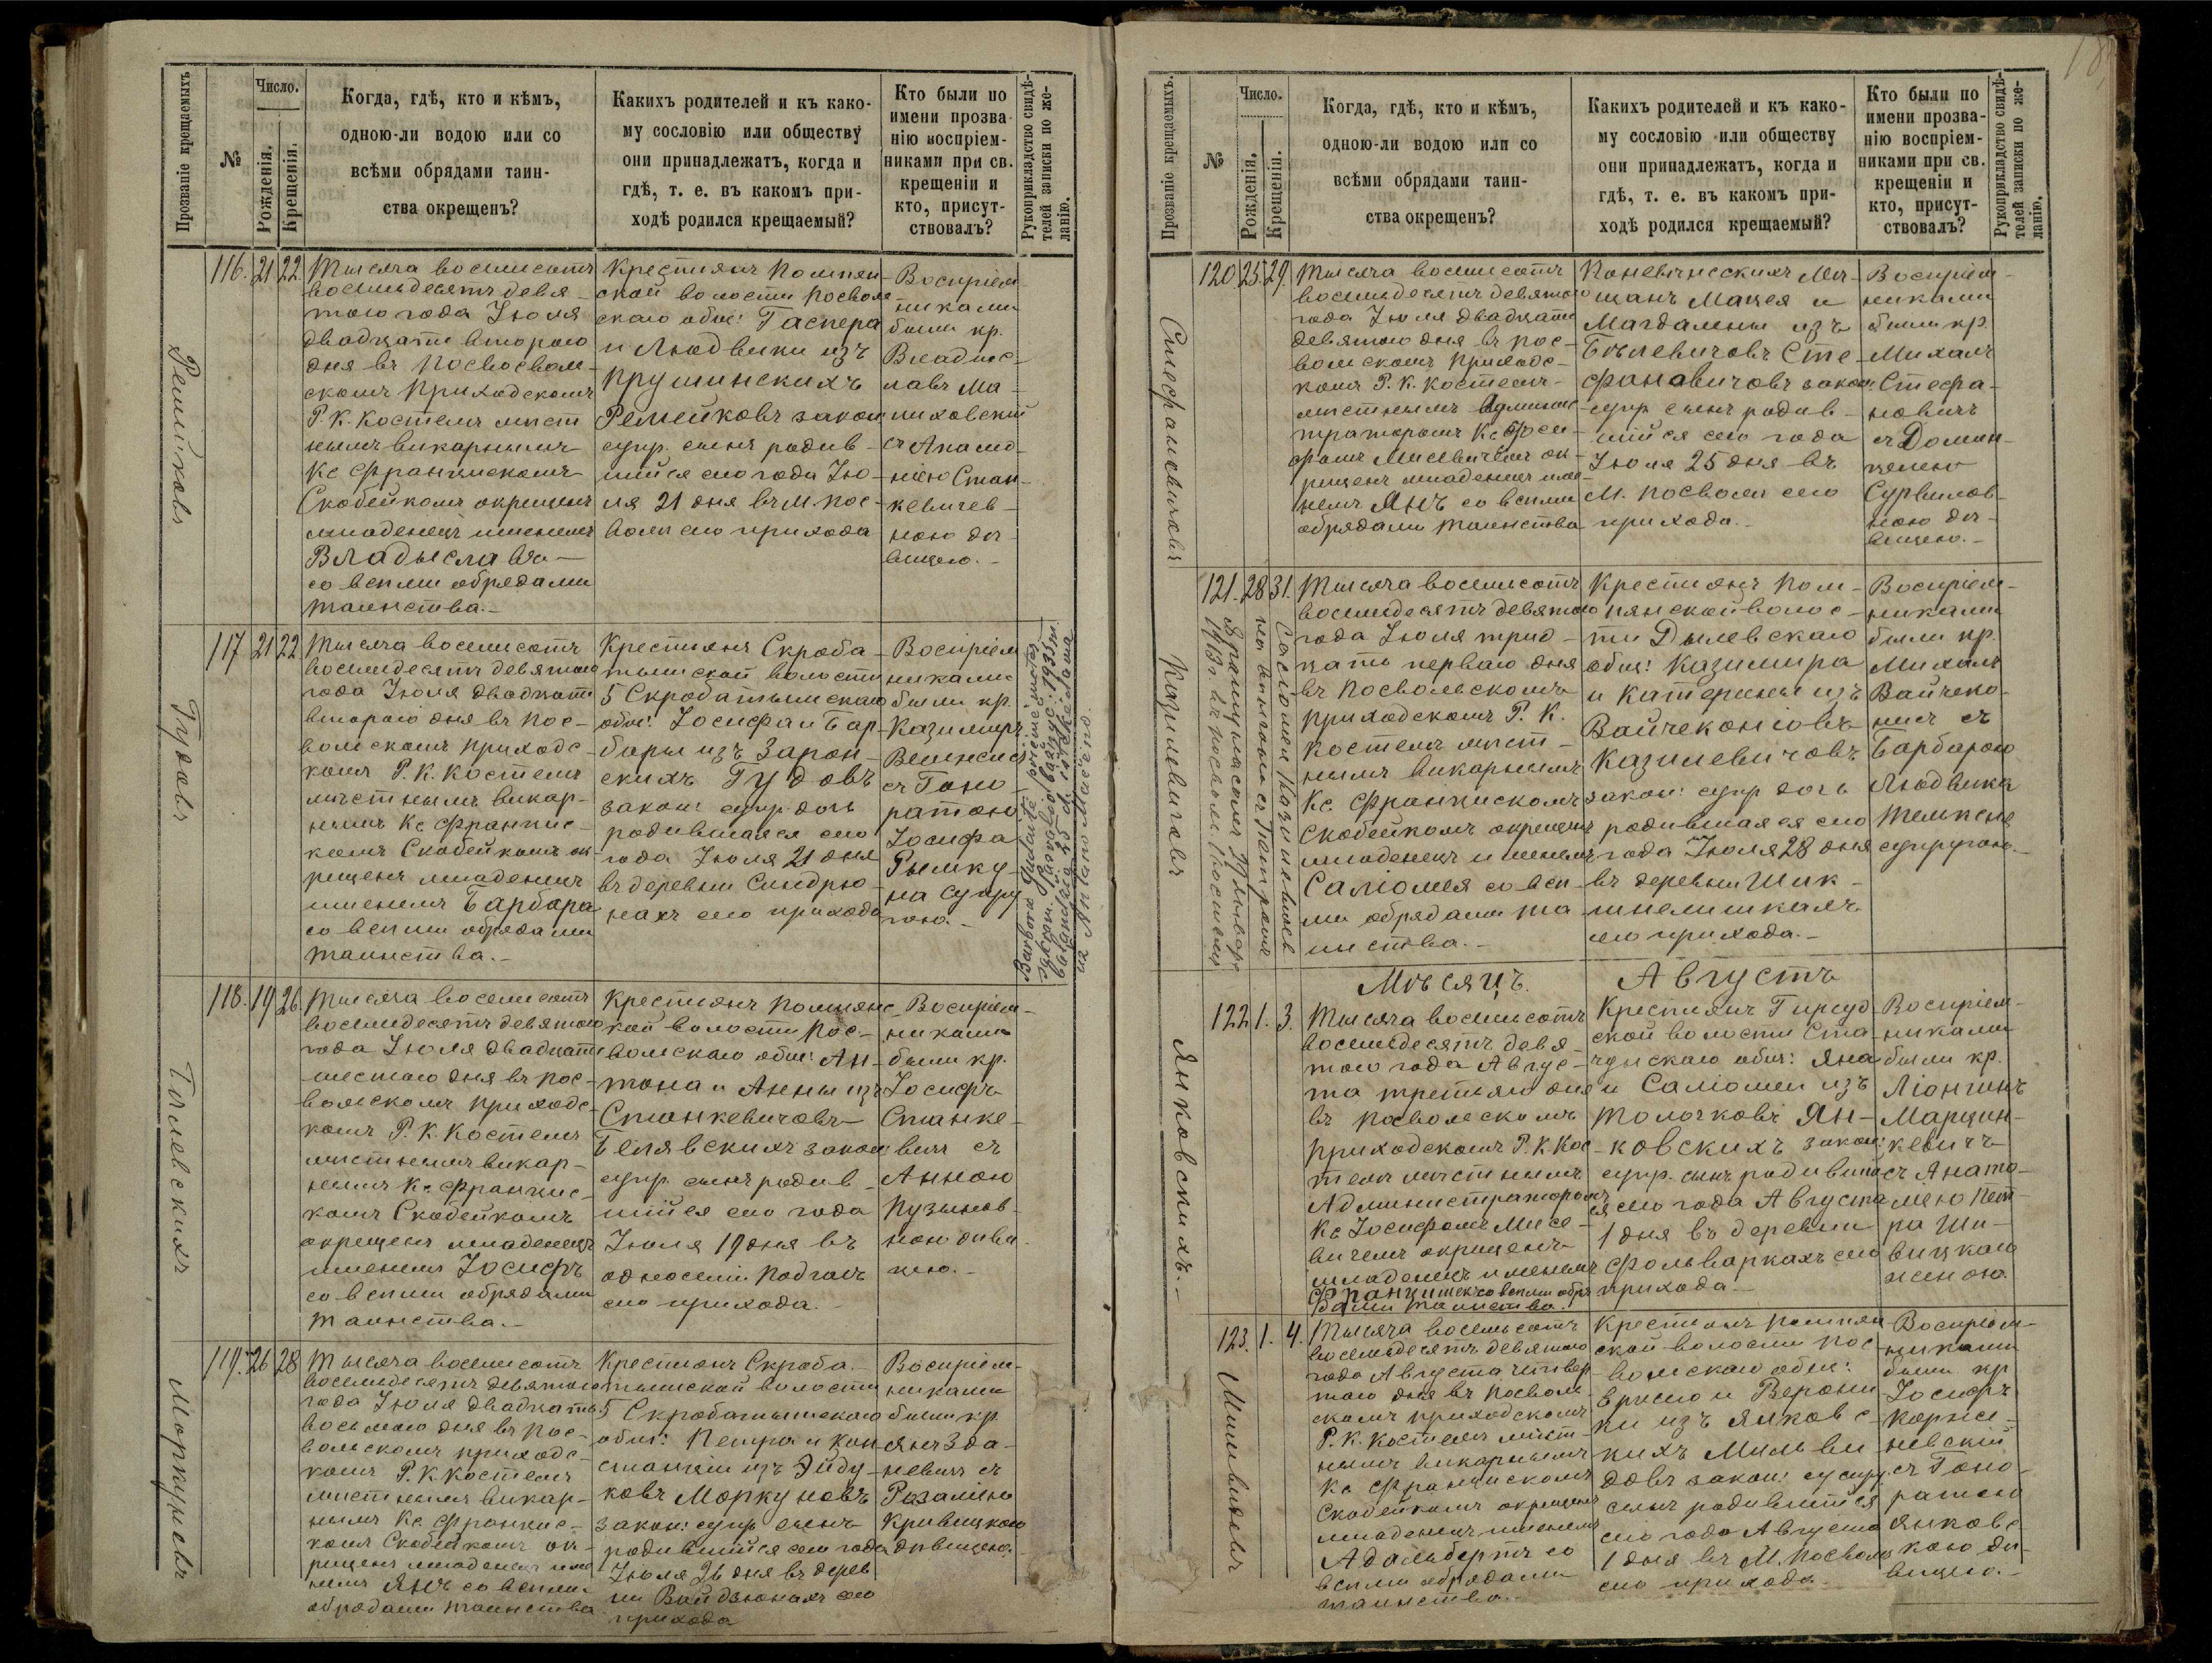 Прозваніе крещаемыхъ
№
Число.
Рожденія.
Крещенія.
Когда, гдѣ, кто и кѣмъ,
одною-ли водою или со
всѣми обрядами таин-
ства окрещенъ?
Какихъ родителей и къ како-
му сословію или обществу
они принадлежатъ, когда и
гдѣ, т. е. въ какомъ при-
ходѣ родился крещаемый?
Кто были по
имени прозва-
нію воспріем-
никами при св.
крещеніи и
кто, присут-
ствовалъ?
Рукоприкладство свидѣ-
телей записки по же-
ланію.
Ремейковъ
116. 21 22
Тысяча восемьсотъ
восемьдесятъ девя-
таго года Іюля
двадцать второго
дня въ Посвоволь-
скомъ приходскомъ
Р. К. Костелѣ мѣст
нымъ викарнымъ
Кс Францискомъ
Скобейкомъ окрещенъ
младенецъ именемъ
Владыславъ
со всѣми обрядами
таинства.-
Крестьянъ Помпян-
ской волости Посволь-
скаго общ: Гаспера
и Людвики изъ
Прушинскихъ
Ремейковъ закон
супр. сынъ родив-
шійся сего года Ію-
ля 21 дня въ м. Пос-
воли сего прихода
Воспріем-
никами
были кр.
Владис-
лавъ Ма-
лиховскій
съ Апало-
ніею Стан-
кевичев-
ною дѣ-
вицею.-
Гудовъ
117 21 22
Тысяча восемьсотъ
восемьдесятъ девятаго
года Іюля двадцать
второго дня въ Пос-
вольскомъ приходс-
комъ Р. К. Костелѣ
мѣстнымъ викар-
нымъ Кс Францис-
комъ Скобейкомъ ок-
рещенъ младенецъ
именемъ Барбара
со всѣми обрядами
таинства.-
Крестьянъ Скроба-
тышской волости
5 Скробатышскаго
общ: Іосифа и Бар-
бары изъ Зарон-
скихъ Гудовъ
закон: супр. дочь
родившаяся сего
года Іюля 21 дня
въ деревни Синдрю-
нахъ сего прихода
Воспріем
никами
были кр.
Казимиръ
съ Гоно-
ратою
Іосифа
Рымку-
на супру
гою.-
Barbora Gudaitė
Белевскихъ
118. 19 26
Тысяча восемьсотъ
восемьдесятъ девятаго
года Іюля двадцать
шестого дня въ Пос-
вольскомъ приходс-
комъ Р. К. Костелѣ
мѣстнымъ викар-
нымъ Кс Францис-
комъ Скобейкомъ
окрещенъ младенецъ
именемъ Іосифъ
со всѣми обрядами
таинства.-
Крестьянъ Помпянс-
кой волости Пос-
вольскаго общ: Ан-
тона и Анны изъ
Станкевичовъ
Белявскихъ закон
супр. сынъ родив-
шійся сего года
Іюля 19 дня въ
односеліи Подгаи
сего прихода.
Воспріем-
никами
были кр.
Іосифъ
Станке-
вичъ съ
Анною
Пузынов-
ною дѣви-
цею.-
Моркуновъ
119. 26 28
Тысяча восемьсотъ
восемьдесятъ девятаго
года Іюля двадцать
восьмого дня въ Пос-
вольскомъ приходс-
комъ Р. К. Костелѣ
мѣстнымъ викар-
нымъ Кс. Францис-
комъ Скобейкомъ ок-
рещенъ младенецъ име
немъ Янъ со всѣми
обрядами таинства
Крестьянъ Скроба-
тышской волости
5 Скробатышскаго
общ: Петра и Кон
станціи изъ Эйду-
ковъ Моркуновъ
закон: супр сынъ
родившійся сего года
Іюля 26 дня въ дерев
ни Вайдзюнахъ сего
прихода
Воспріем-
никами
были кр.
Янъ Зда-
невичъ съ
Розаліею
Кривицкою
дѣвицею.-
Прозваніе крещаемыхъ.
№
Число.
Рожденія.
Крещенія.
Когда, гдѣ, кто и кѣмъ,
одною-ли водою или со
всѣми обрядами таин-
ства окрещенъ?
Какихъ родителей и къ како-
му сословію или обществу
они принадлежатъ, когда и
гдѣ, т. е. въ какомъ при-
ходѣ родился крещаемый?
Кто были по
имени прозва-
нію воспріем-
никами при св.
крещеніи и
кто, присут-
ствовалъ?
Рукоприкладство свидѣ-
телей записки по же-
ланію.
Стефановичовъ
120. 25. 29.
Тысяча восемьсотъ
восемьдесятъ девятаго
года Іюля двадцать
девятаго дня въ Пос-
вольскомъ приходс-
комъ Р. К. Костелѣ-
мѣстнымъ Админис-
траторомъ Кс Іоси-
фомъ Мисевичемъ ок-
рещенъ младенецъ име-
немъ Янъ со всѣми
обрядами таинства
Поневѣжскихъ Мѣ-
щанъ Мацея и
Магдалены изъ
Бѣлевичовъ Сте-
фановичовъ закон
супр сынъ родив-
шійся сего года
Іюля 25 дня въ
М. Посволи сего
прихода.-
Воспріем-
никами
были кр.
Михалъ
Стефа-
новичъ
съ Домин-
целею
Сурвилов-
ною дѣ-
вицею.-
Казилевичовъ
121. 28 31.
Тысяча восемьсотъ
восемьдесятъ девятаго
года Іюля трид-
цать перваго дня
въ Посвольскомъ
приходскомъ Р. К.
Костелѣ мѣст-
нымъ викарнымъ
Кс. Францискомъ
Скобейкомъ окрещенъ
младенецъ именемъ
Саліомея со всѣ-
ми обрядами та
инства.-
Крестьянъ Пом-
пянской волос-
ти Дылевскаго
общ: Казимира
и Катерины изъ
Вайчеконіовъ
Казилевичовъ
закон: супр дочь
родившаяся сего
года Іюля 28 дня
въ деревни Шик-
шнелишкахъ
сего прихода.-
Воспріем-
никами
были кр.
Михалъ
Вайчеко-
нисъ съ
Барбарою
Людвика
супругою.-
Мѣсяцъ. Августъ
Янковскихъ.-
122 1. 3.
Тысяча восемьсотъ
восемьдесятъ девя-
таго года Авгус-
та третьяго дня
въ Посвольскомъ
приходскомъ Р. К Кос-
телѣ мѣстнымъ
Администраторомъ
Кс Іосифомъ Мисе-
вичемъ окрещенъ
младенецъ именемъ
Францишекъ со всѣми обря
дами таинства.
Крестьянъ Гирсуд
ской волости Ста-
чунскаго общ: Яна
и Саліомеи изъ
Толочковъ Ян-
ковскихъ закон:
супр. сынъ родивший
ся сего года Августа
1 дня въ деревни
Фольваркахъ сего
прихода.-
Воспріем-
никами
были кр.
Ліонгинъ
Марцин-
кевичъ
съ Анато-
ліею Пет-
ра Ши-
вицкаго
женою.
Мильвидовъ
123. 1. 4.
Тысяча восемьсотъ
восемьдесятъ девятаго
года Августа четвер
таго дня въ Посволь-
скомъ приходскомъ
Р. К. Костелѣ мѣст-
нымъ викарнымъ
Кс Францискомъ
Скобейкомъ окрещенъ
младенецъ именемъ
Адальбертъ со
всѣми обрядами
таинства.-
Крестьянъ Помпян
ской волости Пос-
вольскаго общ:
и Верони
ки изъ Янковс-
кихъ Мильви-
довъ закон: супр.
сынъ родившійся
сего года Августа
1 дня въ М. Посволи
сего прихода.-
Воспріем-
никами
были кр
Іосифъ
Корже-
невскій
съ Гоно-
ратою
Янковс
кою дѣ-
вицею.-